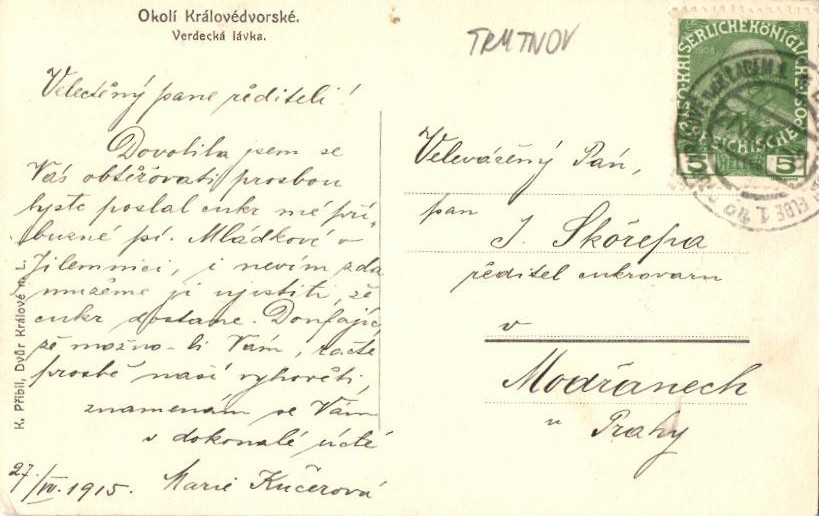 Okolí Královédvorské.
Verdecká lávka.
TRUTNOV
Velectěný pane řediteli!
Dovolila jsem se
Vás obtěžovati prosbou
byste poslal cukr mé pří-
buzné pí. Mládkové v
Jilemnici, i nevím zda
můžeme ji ujistiti, že
cukr dostane. Doufajíc,
že možno-li Vám, račte
prosbě naší vyhověti,
znamenám se Vám
v dokonalé úctě
27/IV. 1915. Marie Kučerová
K. Přibil, Dvůr Králové n. L.
Velevážený Pán,
pan
J. Skořepa
ředitel cukrovaru
v
Modřanech
u Prahy
KAISERLICHE KÖNIGLICHE
1908
5 HELLER 5